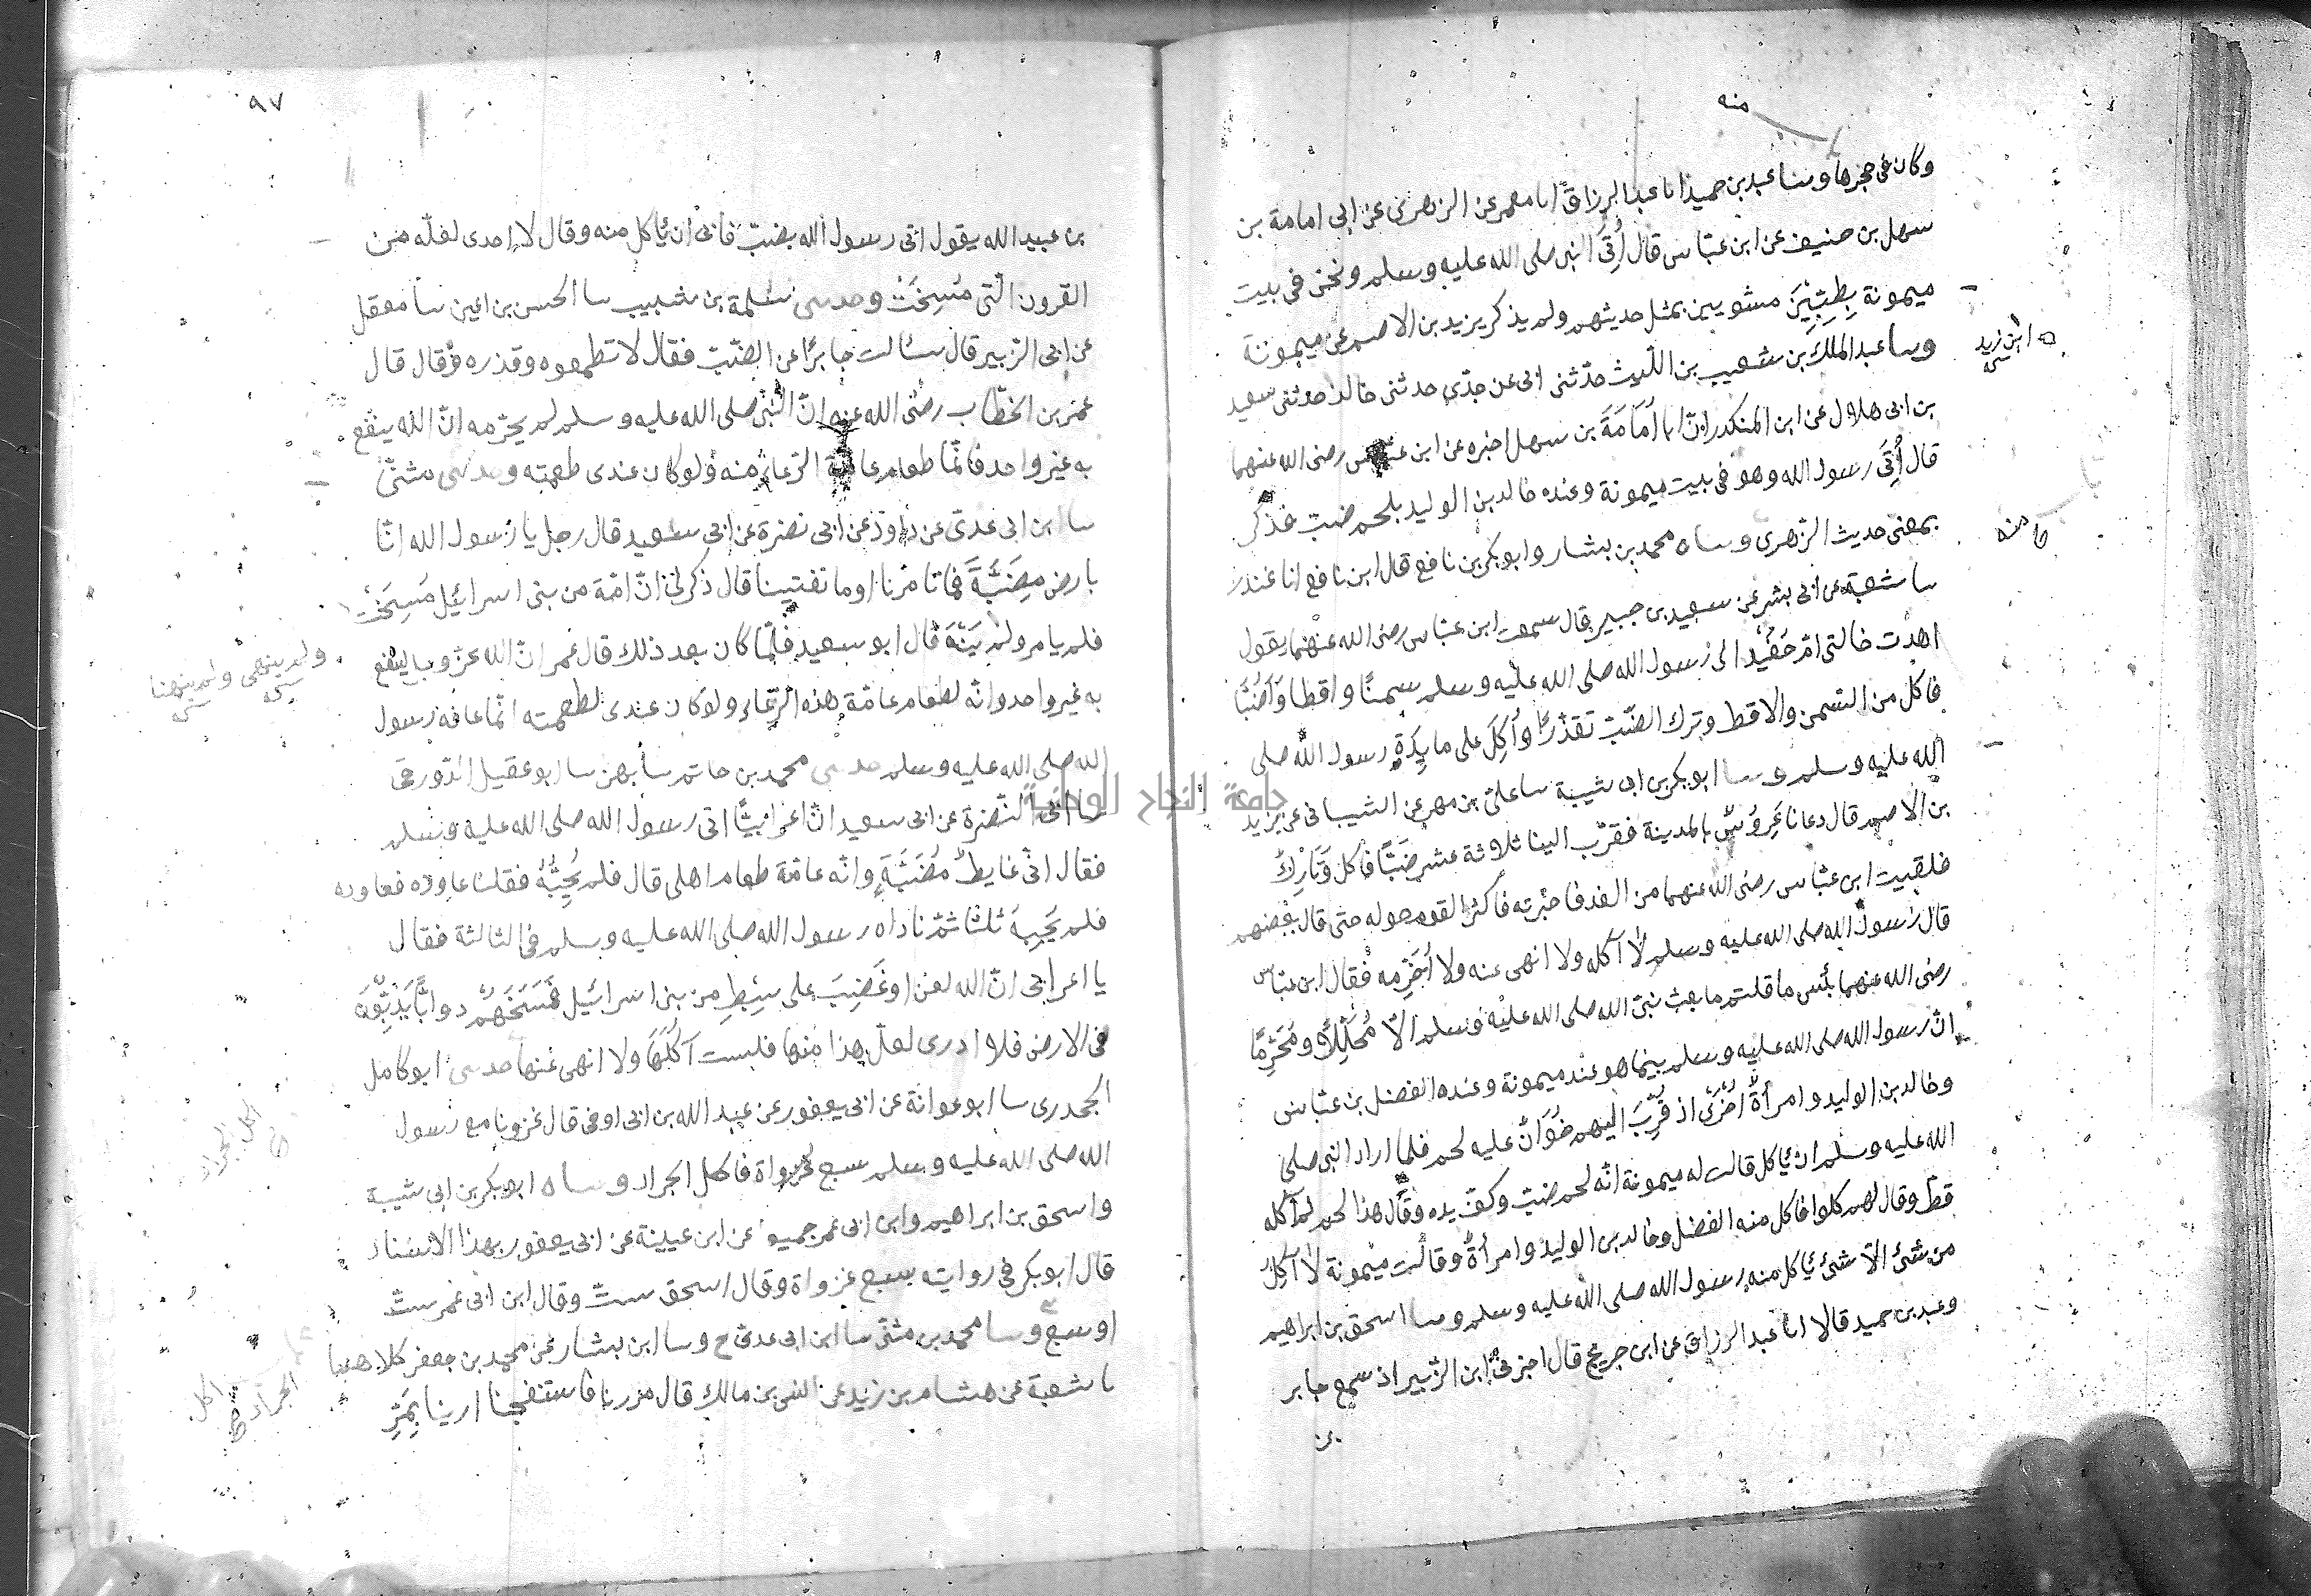 منه
وكان فى حجرها وسا عبد بن حميد انا عبد الرزاق انا معمر عن الزهرى عن ابى امامة بن
سهل بن حنيف عن ابن عباس قال أُتِىَ النبى صلى الله عليه وسلم ونحن فى بيت
ميمونة بِضبَّيْنِ مشويين بمثل حديثهم ولم يذكر يزيد بن الاصم عن ميمونة
وسا عبد الملك بن شعيب بن الليث حدّثنى ابى عن جدّى حدثنى خالد حدثنى سعيد
بن ابى هلال عن ابن المنكدر انّ ابا أُمَامَةَ بن سهل اخبره عن ابن عباس رضى الله عنهما
قال أُتِىَ رسول الله وهو فى بيت ميمونة وعنده خالد بن الوليد بلحم ضب فذكر
بمعنى حديث الزهرى وساه محمد بن بشار وابو بكر بن نافع قال ابن نافع انا غندر
سا شعبة عن ابى بشر عن سعيد بن جبير قال سمعت ابن عباس رضى الله عنهما يقول
اهدت خالتى امّ حفيد الى رسول الله صلى الله عليه وسلم سمنًا واقطا وَاَضُبًّا
فاكل من السّمن والاقط وترك الضّبّ تقذّرًا وأُكِلَ على مايدة رسول الله صلى
الله عليه وسلم وسا ابو بكر بن ابى شيبة سا علىّ بن مهر عن الشيبانى عن يزيد
بن الاصم قال دعانا عَرُوسٌ بالمدينة فقرّب الينا ثلاثة عشر ضَبًّا فآكل وَتَارِكٌ
فلقيت ابن عبّاس رضى الله عنهما من الغد فاخبرته فاكثر القوم حوله حتى قال بعضهم
قال رسول الله صلى الله عليه وسلم لا آكله ولا انهى عنه ولا أُحَرِّمه فقال ابن عباس
رضى الله عنهما بئس ما قلتم ما بعث نبىّ الله صلى الله عليه وسلم الّا مُحَلِّلًا ومُحَرِّمًا
انّ رسول الله صلى الله عليه وسلم بينما هو عند ميمونة وعنده الفضل بن عبّاس
وخالد بن الوليد وامرأةٌ اُخْرَى اذ قُرِّبَ اليهم خُوَانٌ عليه لحم فلما اراد النبى صلى
الله عليه وسلم ان يأكل قالت له ميمونة انّه لحم ضبّ وكفّ يده وقال هذا لحم لم آكله
قطّ وقال لهم كلوا فاكل منه الفضل وخالد بن الوليد وامرأةٌ وقالت ميمونة لا آكل
من شىء الّا شىء يأكل منه رسول الله صلى الله عليه وسلم وسا اسحق بن ابراهيم
وعبد بن حميد قالا انا عبد الرزاق عن ابن جريج قال اخبرنى ابن الزّبير اذ سمع جابر
بن
ابن زيد
منه
٩٧
بن عبيد الله يقول اتى رسول الله بضبّ فأبى ان يأكل منه وقال لا ادرى لعلّه من
القرون الّتى مُسِخَتْ وحدسى سلمة بن شبيب سا الحسن بن اعين سا معقل
عن ابى الزّبير قال سئالت جابرًا عن الضّبّ فقال لا تطعموه وقذره وقال قال
عمر بن الخطّاب رضى الله عنه انّ النّبىّ صلى الله عليه وسلم لم يحرّمه انّ الله ينفع
به غير واحد فانّما طعام عامّة الرّعاء منه ولو كان عندى طعمته وحدسى مثنّى
سا ابن ابى عدى عن داود عن ابى نضرة عن ابى سعيد قال رجل يا رسول الله انّا
بارض مضَبَّةَ فما تامرنا او ما تفتينا قال ذكر لى انّ امّة من بنى اسرائيل مُسِخَتْ
فلم يامر ولم يَنْهَ قال ابو سعيد فلمّا كان بعد ذلك قال عمر انّ الله عزّ وجل لينفع
به غير واحد وانّه لطعام عامّة هذه الرّعاء ولو كان عندى لطعمته انّما عافه رسول
الله صلى الله عليه وسلم حدسى محمد بن حاتم سا بهز سا ابو عقيل الدّورقى
سا ابى النّضرة عن ابى سعيد انّ اعرابيًّا اتى رسول الله صلى الله عليه وسلم
فقال انّى غايط مُضَبَّةٍ وانّه عامّة طعام اهلى قال فلم يُجِبْهُ فقلنا عاوده فعاوده
فلم يُجِبهُ ثلثا ثمّ ناداه رسول الله صلى الله عليه وسلم فى الثالثة فقال
يا اعرابى انّ الله لعن او غَضِبَ على سبطِ من بنى اسرائيل فمَسَخَهُمْ دوابًّا يَدِبُّونَ
فى الارض فلا ادرى لعلّ هذا منها فلست آكُلُهَا ولا انهى عنها حدسى ابو كامل
الجحدرى سا ابو عوانة عن ابى يعفور عن عبد الله بن ابى اوفى قال غزونا مع رسول
الله صلى الله عليه وسلم سبع غزواة فاكل الجراد وساه ابو بكر بن ابى شيبة
واسحق بن ابراهيم وابن ابى عمر جميعا عن ابن عيينة عن ابى يعفور بهذا الاسناد
قال ابو بكر فى روايته سبع غزواة وقال اسحق ستّ وقال ابن ابى عمر ستّ
او سبع وسا محمد بن مثنّى سا ابن ابى عدىّ ح وسا ابن بشار عن محمد بن جعفر كلاهما
سا شعبة عن هشام بن زيد عن انس بن مالك قال مررنا فاستنفجنا ارنبا بِمَرِّ
ولم ينهى ولم ينهنا
اكل الجراد
اكل الجراد
جامعة النجاح الوطنية